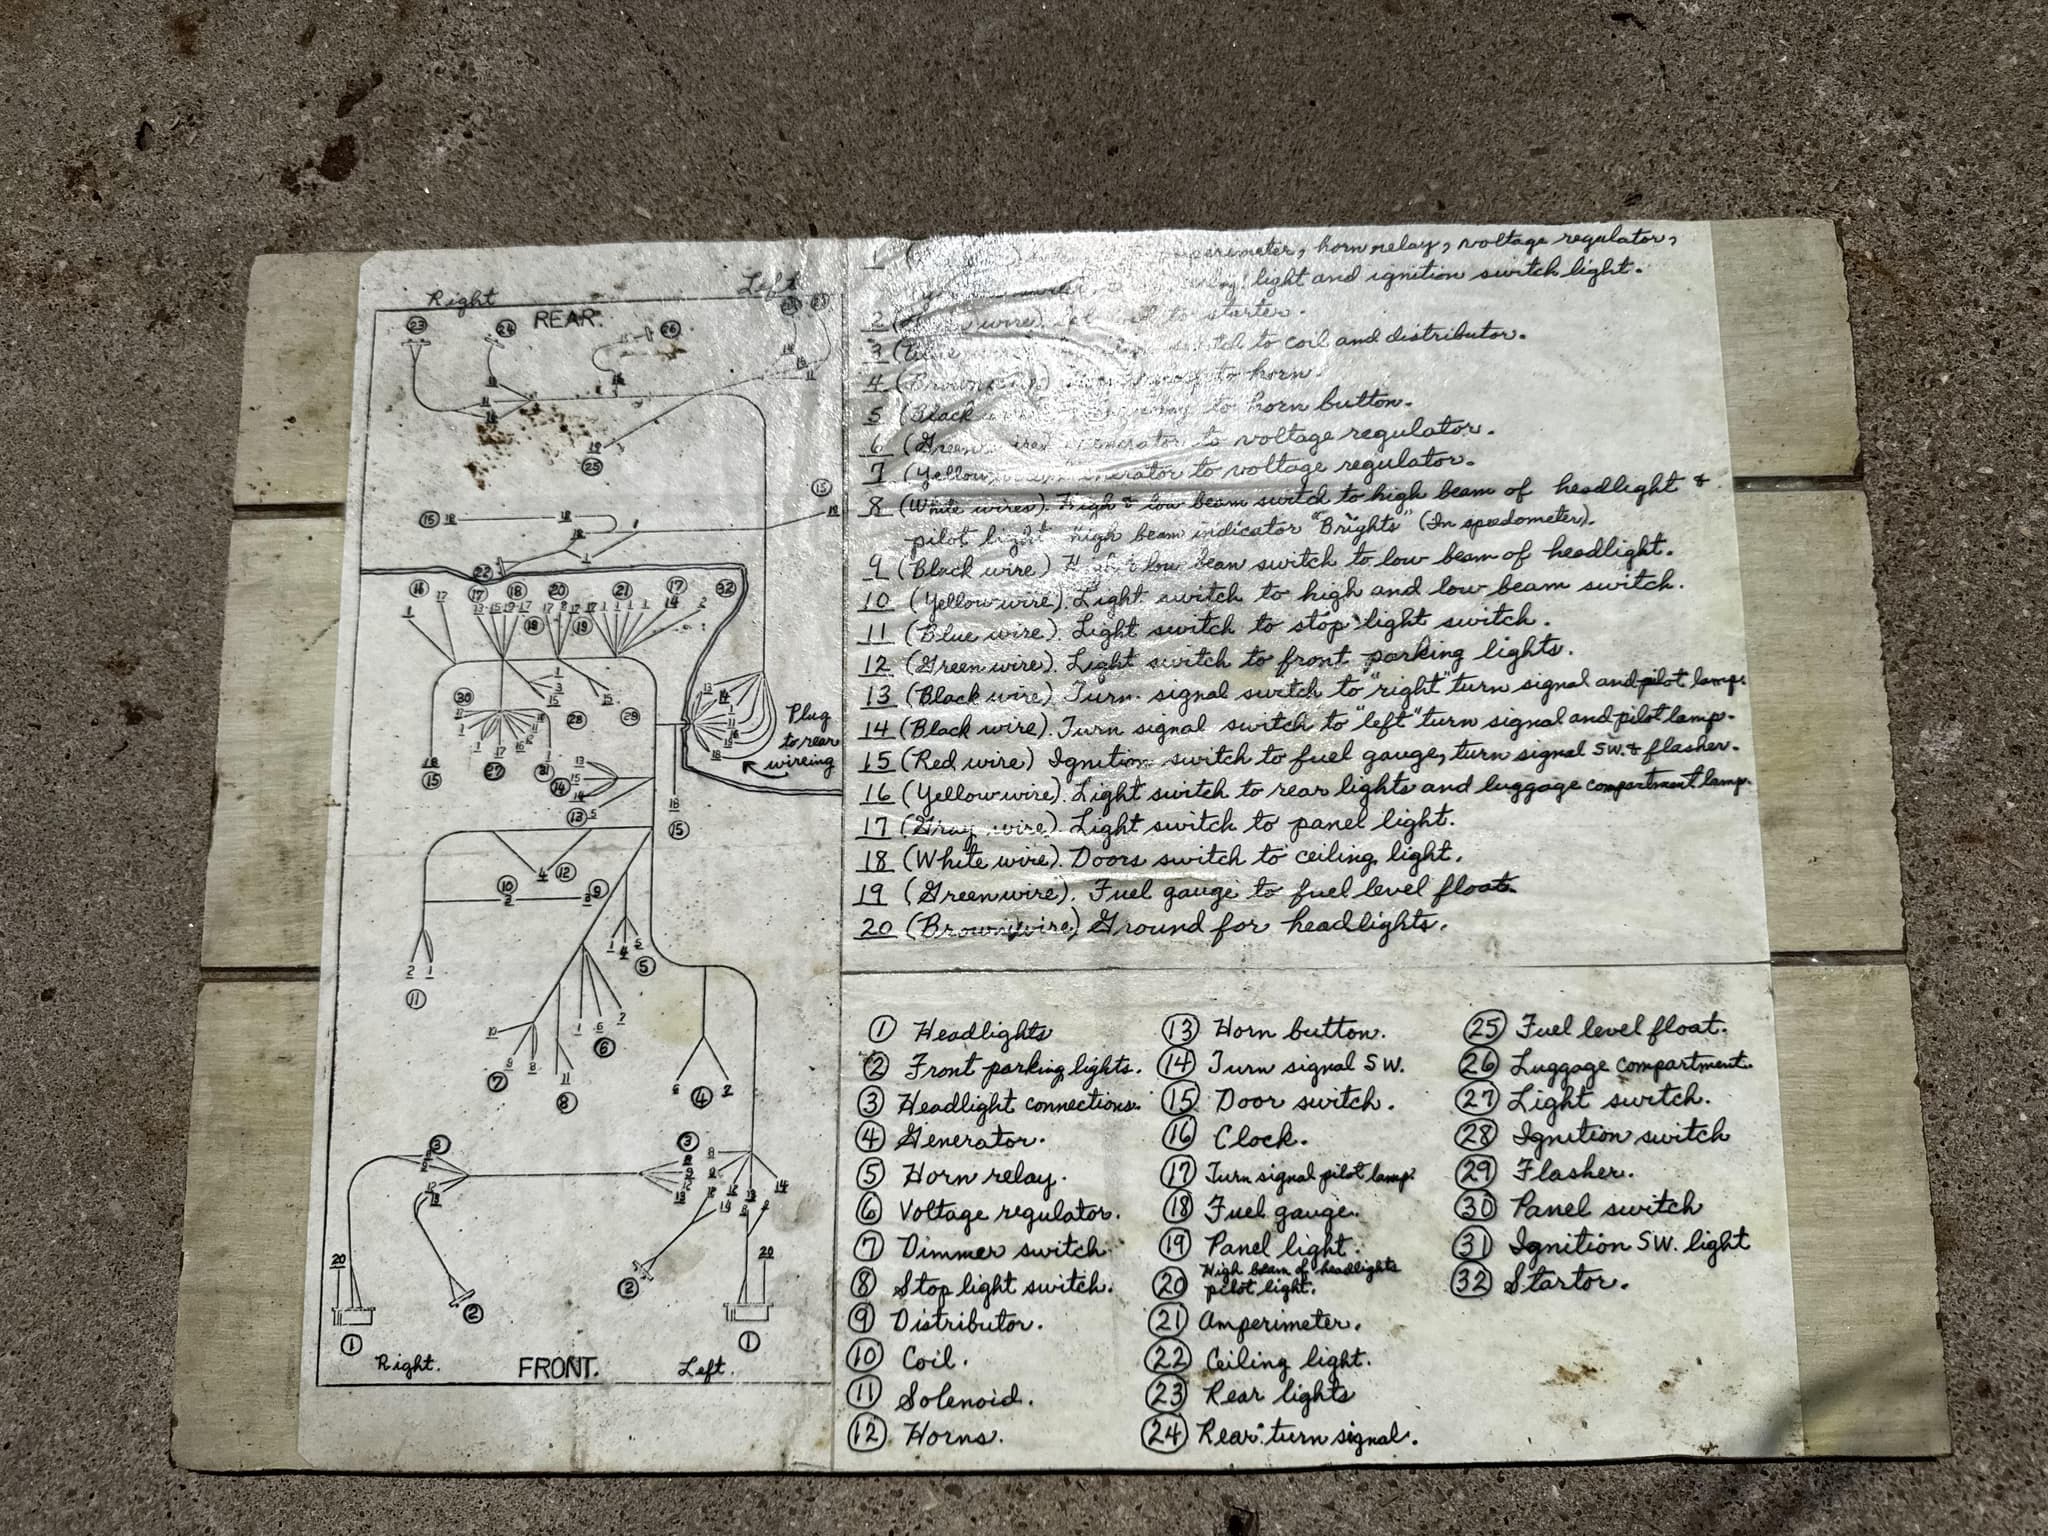 Right
Left
REAR.
23
24
26
25
15
15
22
16
17
18
20
21
17
32
18
19
30
28
29
27
31
14
13
15
15
Plug
to rear
wireing
12
10
9
11
5
6
7
8
4
3
3
2
2
1
1
20
20
Right.
FRONT.
Left.
1 horn relay, voltage regulator,
light and ignition switch light.
2 wire) to starter.
3 switch to coil and distributor.
4 (Brown to horn.
5 (Black to horn button.
6 (Green wire) Generator to voltage regulator.
7 (Yellow Generator to voltage regulator.
8 (White wires). High & low beam switch to high beam of headlight &
pilot light high beam indicator "Brights" (In speedometer).
9 (Black wire) High & low beam switch to low beam of headlight.
10 (Yellow wire). Light switch to high and low beam switch.
11 (Blue wire). Light switch to stop light switch.
12 (Green wire). Light switch to front parking lights.
13 (Black wire). Turn signal switch to "right" turn signal and pilot lamp.
14 (Black wire). Turn signal switch to "left" turn signal and pilot lamp.
15 (Red wire) Ignition switch to fuel gauge, turn signal SW. & flasher.
16 (Yellow wire). Light switch to rear lights and luggage compartment lamp.
17 (Gray wire). Light switch to panel light.
18 (White wire). Doors switch to ceiling light.
19 (Green wire). Fuel gauge to fuel level float.
20 (Brown wire) Ground for headlights.
1 Headlights
2 Front parking lights.
3 Headlight connections.
4 Generator.
5 Horn relay.
6 Voltage regulator.
7 Dimmer switch.
8 Stop light switch.
9 Distributor.
10 Coil.
11 Solenoid.
12 Horns.
13 Horn button.
14 Turn signal SW.
15 Door switch.
16 Clock.
17 Turn signal pilot lamp.
18 Fuel gauge.
19 Panel light.
20 High beam of headlights
pilot light.
21 Amperimeter.
22 Ceiling light.
23 Rear lights
24 Rear turn signal.
25 Fuel level float.
26 Luggage compartment.
27 Light switch.
28 Ignition switch
29 Flasher.
30 Panel switch
31 Ignition SW. light
32 Startor.